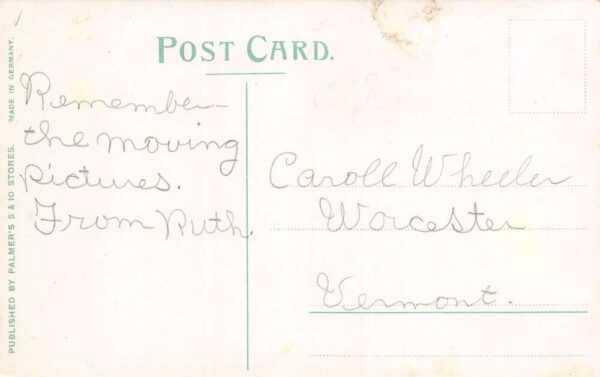 POST CARD.
Remember
the moving
pictures.
From Ruth.
Caroll Wheeler
Worcester
Vermont.
PUBLISHED BY PALMER'S 5 & 10 STORES. MADE IN GERMANY.